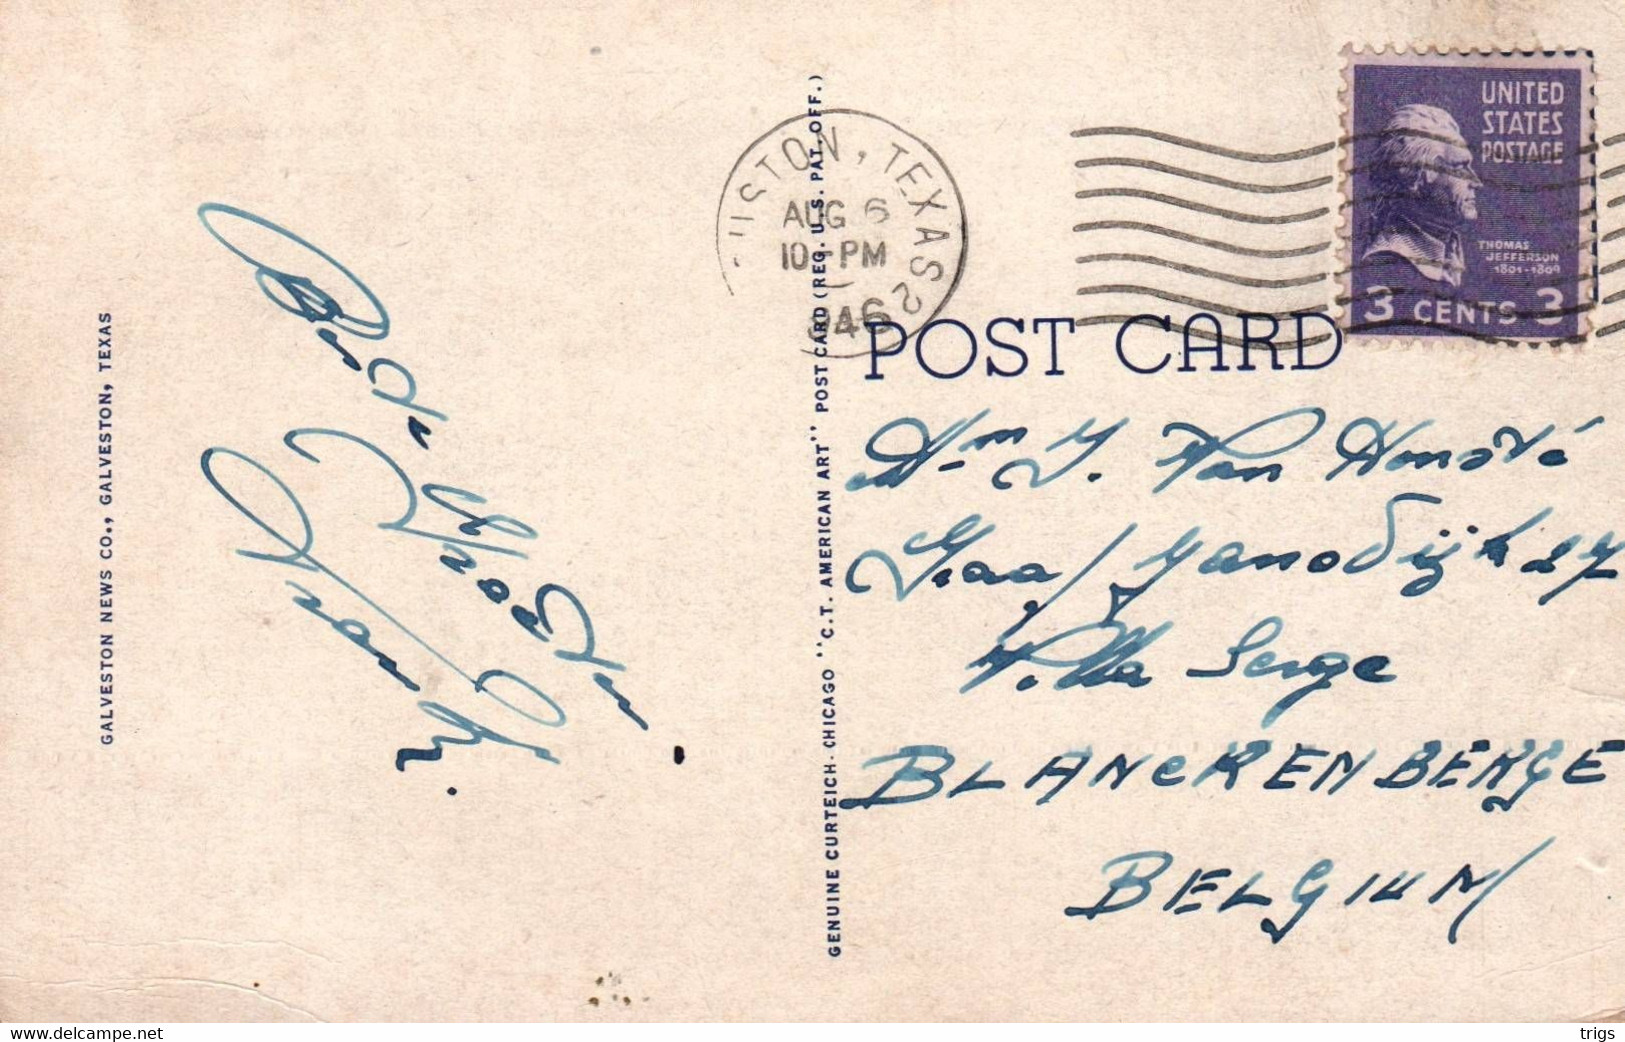 GALVESTON NEWS CO., GALVESTON, TEXAS
GENUINE CURTEICH-CHICAGO "C.T. AMERICAN ART" POST CARD (REG. U.S. PAT. OFF.)
USTON, TEXAS 2
AUG 6
10-PM
1946
UNITED
STATES
POSTAGE
THOMAS
JEFFERSON
1801-1809
3 CENTS 3
POST CARD
J. Van
Graaf Jansdijk 27
Villa Serge
BLANCKENBERGE
BELGIUM
www.delcampe.net
trigs